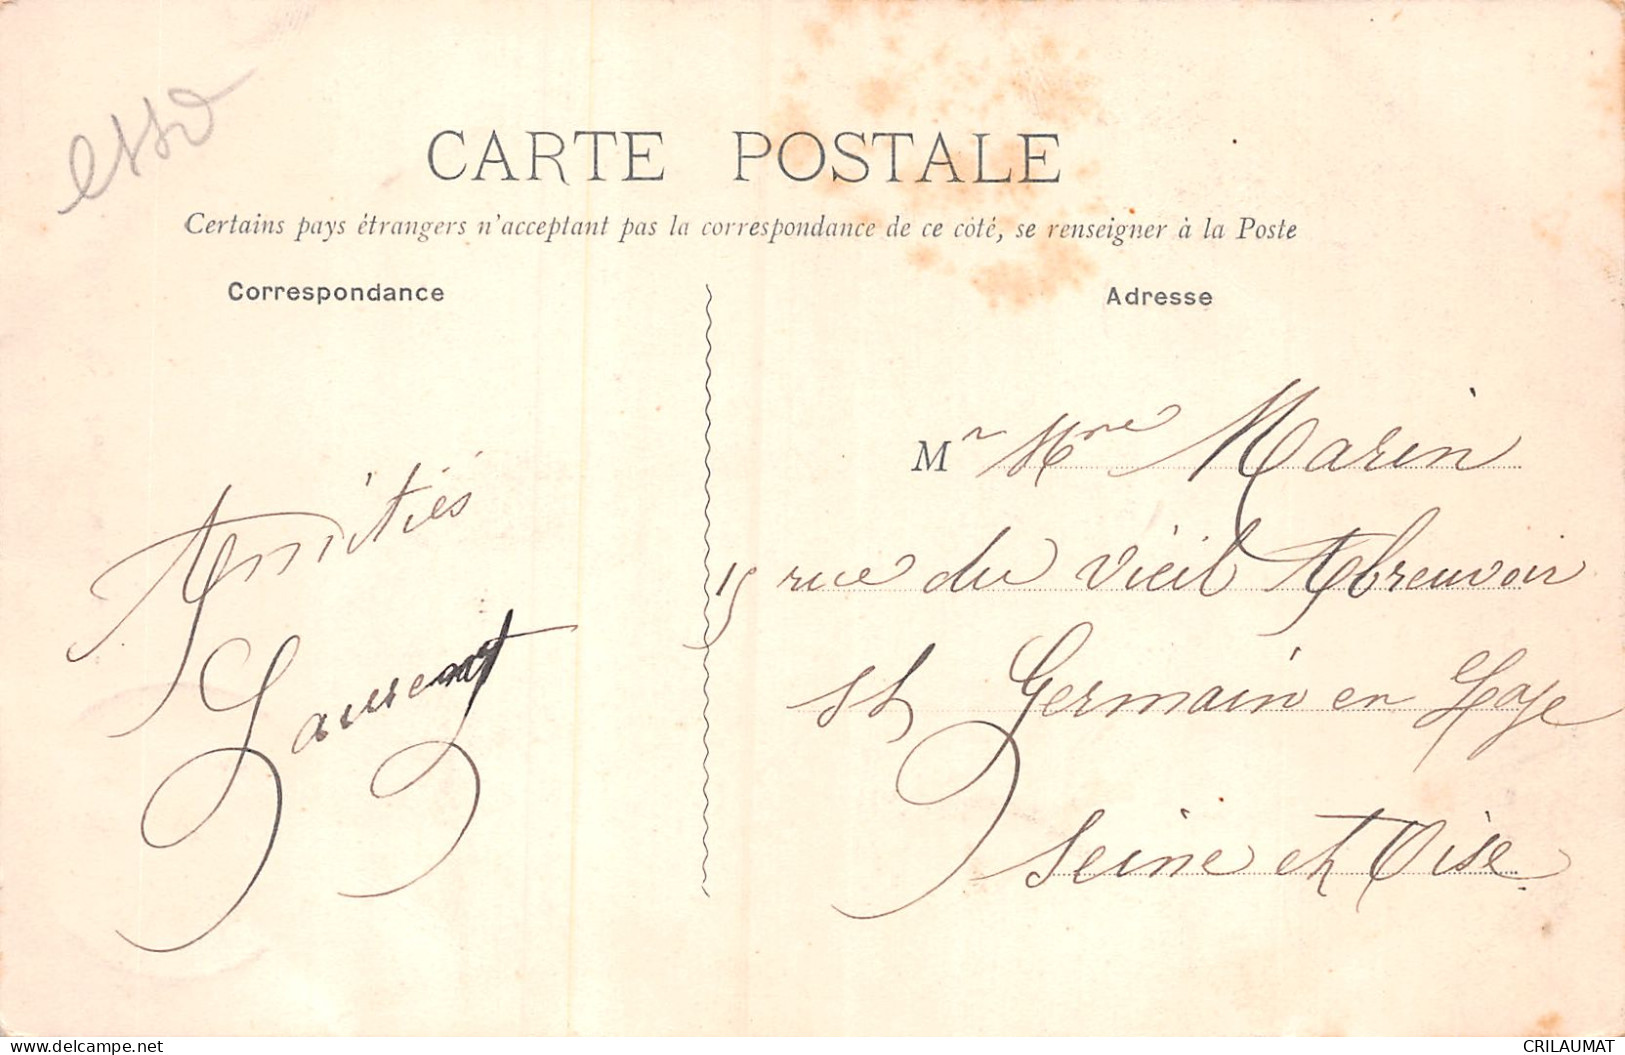 CARTE POSTALE
Certains pays étrangers n'acceptant pas la correspondance de ce côté, se renseigner à la Poste
Correspondance
Adresse
Amitiés
Laurent
Mr Mme Marin
15 rue du Vieil Abreuvoir
St Germain en Laye
Seine et Oise
delcampe.net
CRILAUMAT